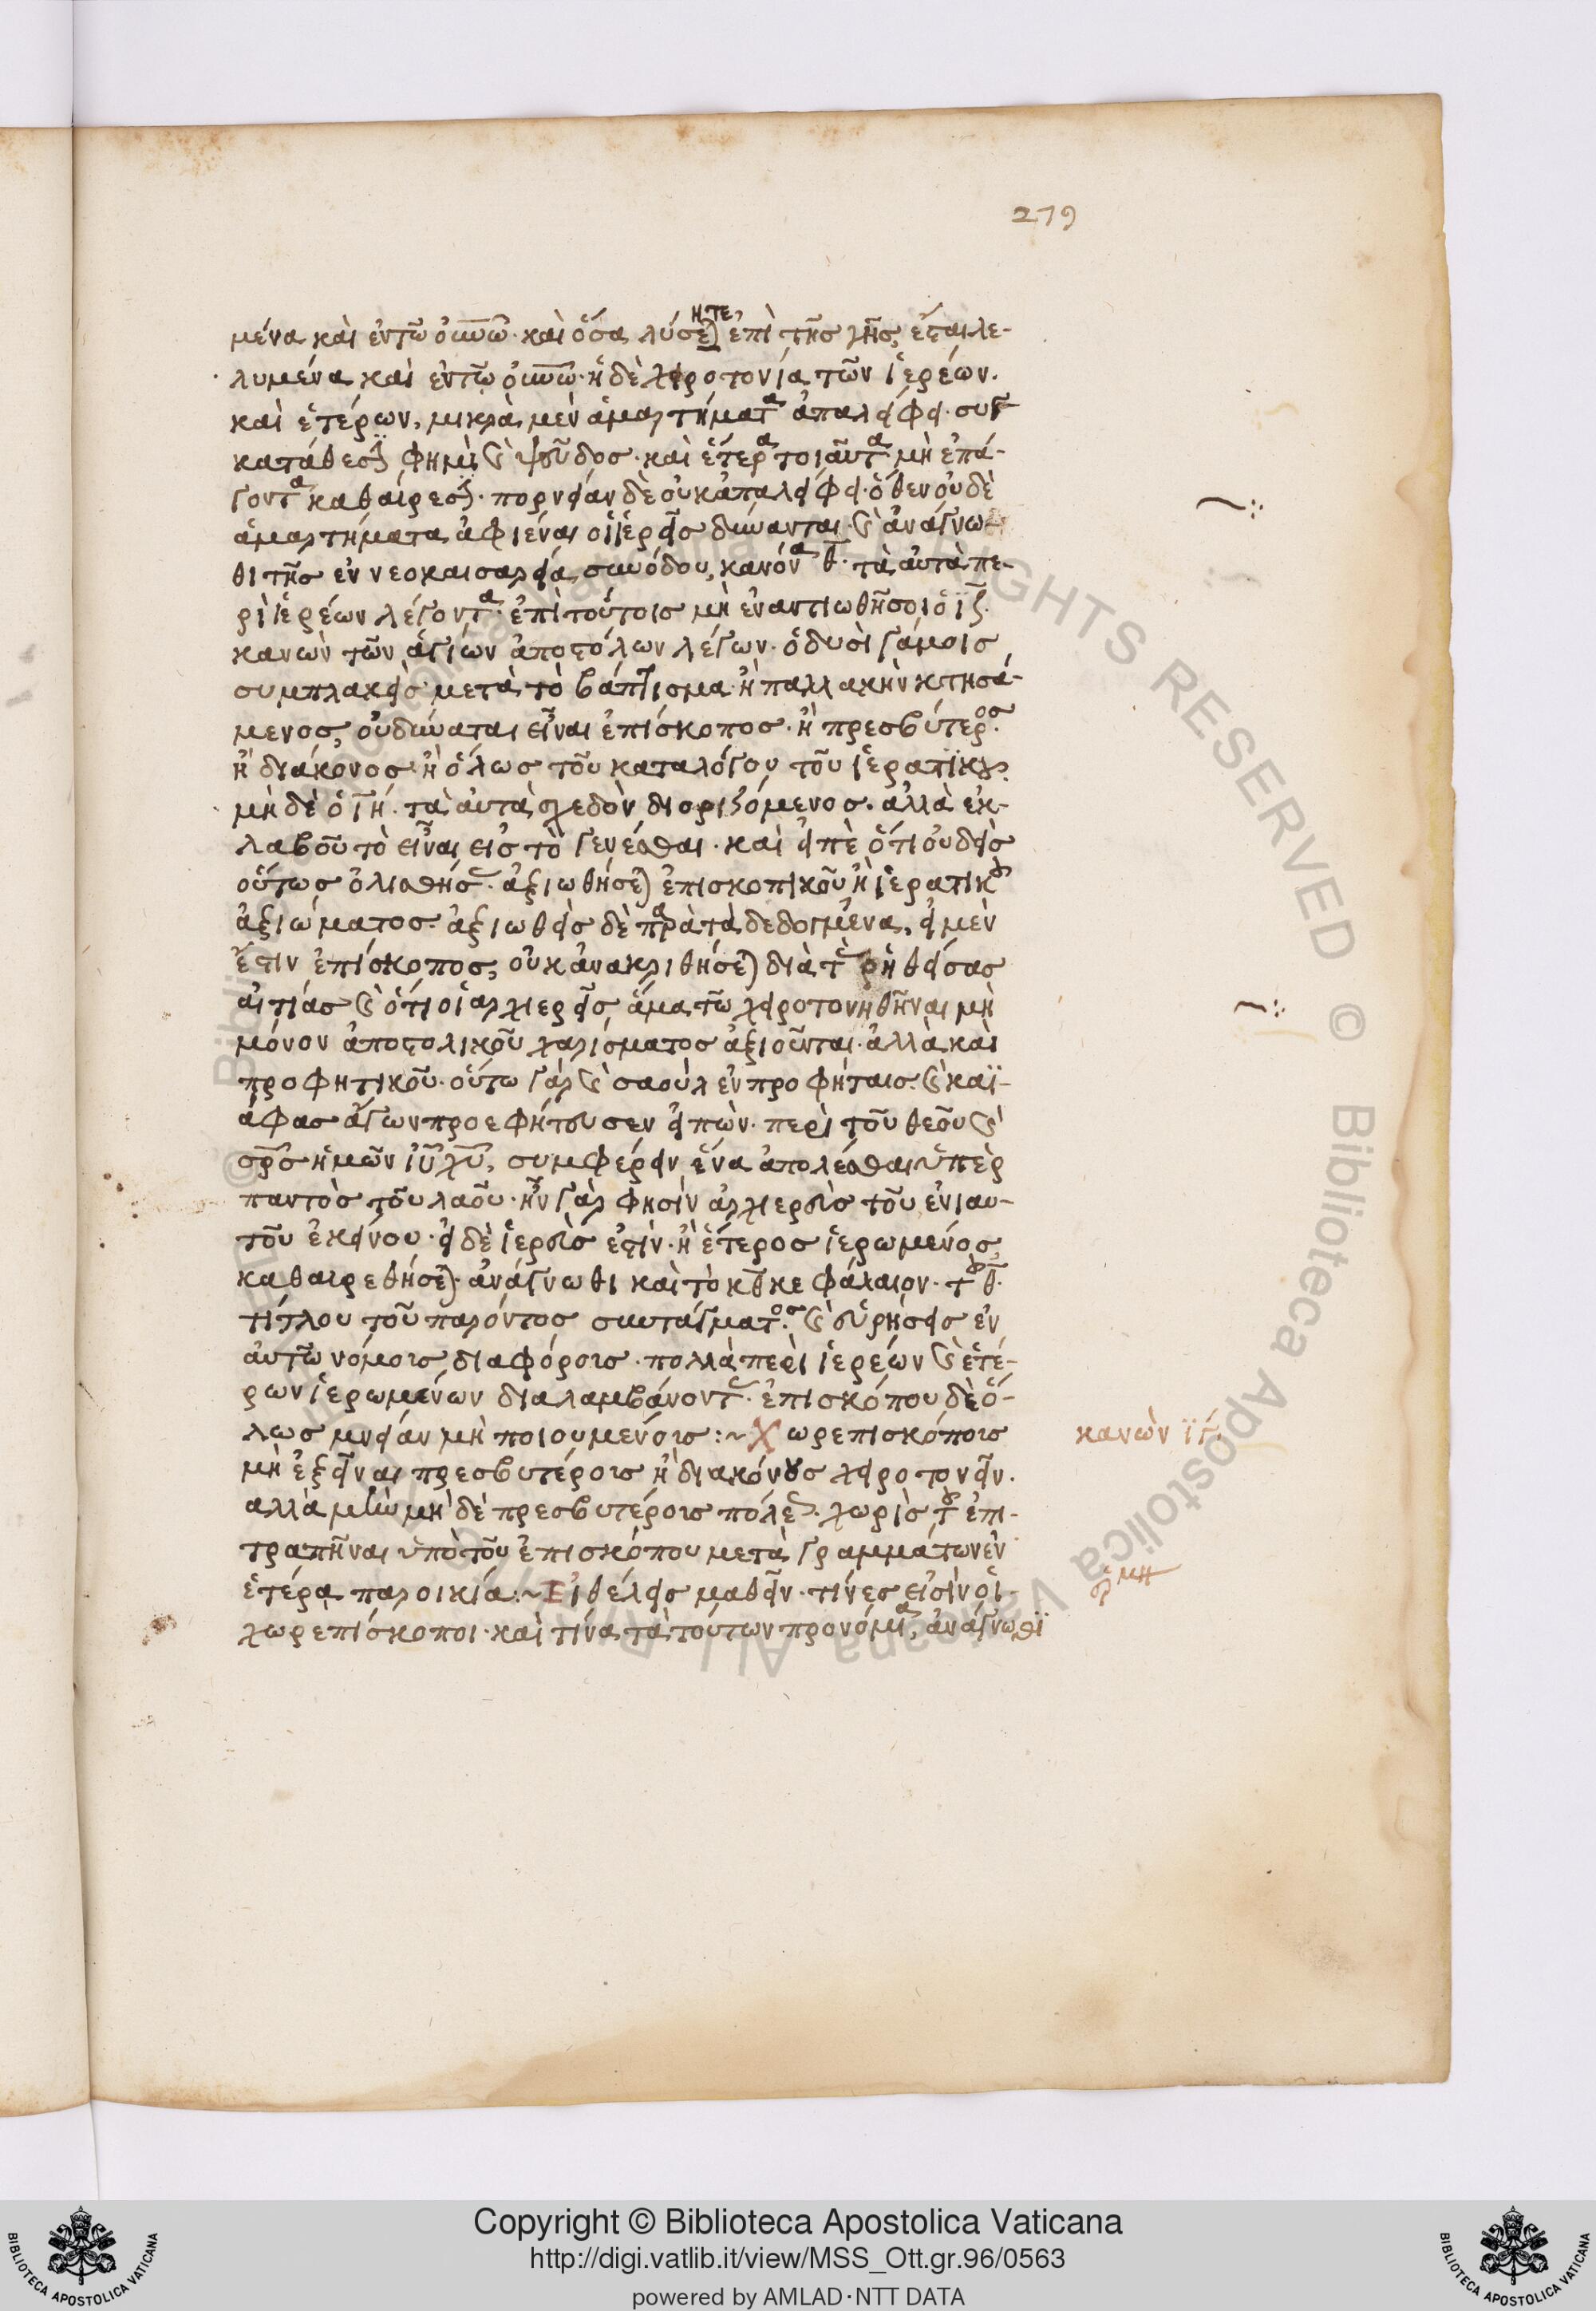 279
μένα καὶ ἐν τῶ οὐνῶ· καὶ ὅσα λύσηται ἐπὶ τῆς γῆς, ἔσται λε-
λυμένα καὶ ἐν τῶ οὐνῶ· ἡ δὲ χειροτονία τῶν ἱερέων.
καὶ ἑτέρων, μικρὰ μὲν ἁμαρτήματα ἀπαλείφει· συγ
κατάθεσιν φημὶ καὶ ψεῦδος· καὶ ἕτερα τοιαῦτα μὴ ἐπά-
γοντα καθαίρεσιν· πορνείαν δὲ οὐκ ἀπαλείφει· ὅθεν οὐδὲ
ἁμαρτήματα ἀφιέναι οἱ ἱερεῖς δύνανται· καὶ ἀνάγνω-
θι τῆς ἐν νεοκαισαρεία συνόδου, κανόνα θ· τὰ αὐτὰ πε-
ρὶ ἱερέων λέγοντα· ἐπὶ τούτοις μὴ ἐναντιωθῆ σοι ὁ ιζ
κανὼν τῶν ἁγίων ἀποστόλων λέγων· ὁ δυσὶ γάμοις
συμπλακεὶς μετὰ τὸ βάπτισμα· ἢ παλλακὴν κτησά-
μενος, οὐ δύναται εἶναι ἐπίσκοπος· ἢ πρεσβύτερος·
ἢ διάκονος· ἢ ὅλως τοῦ καταλόγου τοῦ ἱερατικοῦ·
μὴ δὲ ὁ ιη· τὰ αὐτὰ σχεδὸν διοριζόμενος. ἀλλὰ ἐκ-
λαβοῦ τὸ εἶναι εἰς τὸ γενέσθαι· καὶ εἰπὲ ὅτι οὐδεὶς
οὕτως ὀλισθήσας· ἀξιωθήσεται ἐπισκοπικοῦ ἢ ἱερατικοῦ
ἀξιώματος· ἀξιωθεὶς δὲ παρὰ τὰ δεδογμένα, εἰ μὲν
ἔστιν ἐπίσκοπος, οὐκ ἀνακριθήσεται διὰ τὰς ῥηθείσας
αἰτίας καὶ ὅτι οἱ ἀρχιερεῖς, ἅμα τῶ χειροτονηθῆναι μὴ
μόνον ἀποστολικοῦ χαρίσματος ἀξιοῦνται· ἀλλὰ καὶ
προφητικοῦ· οὕτω γὰρ καὶ σαοὺλ ἐν προφήταις· καὶ καϊ-
άφας ἄγων προεφήτευσεν εἰπὼν· περὶ τοῦ θεοῦ καὶ
σρς ἡμῶν ιυ χυ, συμφέρειν ἕνα ἀπολέσθαι ὑπὲρ
παντὸς τοῦ λαοῦ· ἦν γάρ φησὶν ἀρχιερεὺς τοῦ ἐνιαυ-
τοῦ ἐκείνου· εἰ δὲ ἱερεὺς ἐστὶν· ἢ ἕτερος ἱερωμένος,
καθαιρεθήσεται· ἀνάγνωθι καὶ τὸ κθ κεφάλαιον· τοῦ θ
τίτλου τοῦ παρόντος συντάγματος· καὶ εὑρήσεις ἐν
αὐτῶ νόμοις διαφόροις· πολλὰ περὶ ἱερέων καὶ ἑτέ-
ρων ἱερωμένων διαλαμβάνοντας· ἐπισκόπου δὲ ὅ-
λως μνείαν μὴ ποιουμένοις :~ Χωρεπισκόποις
κανὼν ιγ
μὴ ἐξεῖναι πρεσβυτέροις ἢ διακόνους χειροτονεῖν.
ἀλλὰ μὴν μὴ δὲ πρεσβυτέροις πόλεως· χωρὶς τοῦ ἐπι-
τραπῆναι ὑπὸ τοῦ ἐπισκόπου μετὰ γραμμάτων ἐν
ἑτέρα παροικία :~ Εἰ θέλεις μαθεῖν· τίνες εἰσὶν οἱ
χωρεπίσκοποι· καὶ τίνα τὰ τούτων προνόμια, ἀνάγνωθϊ
Copyright © Biblioteca Apostolica Vaticana
http://digi.vatlib.it/view/MSS_Ott.gr.96/0563
powered by AMLAD·NTT DATA
BIBLIOTECA APOSTOLICA VATICANA
BIBLIOTECA APOSTOLICA VATICANA